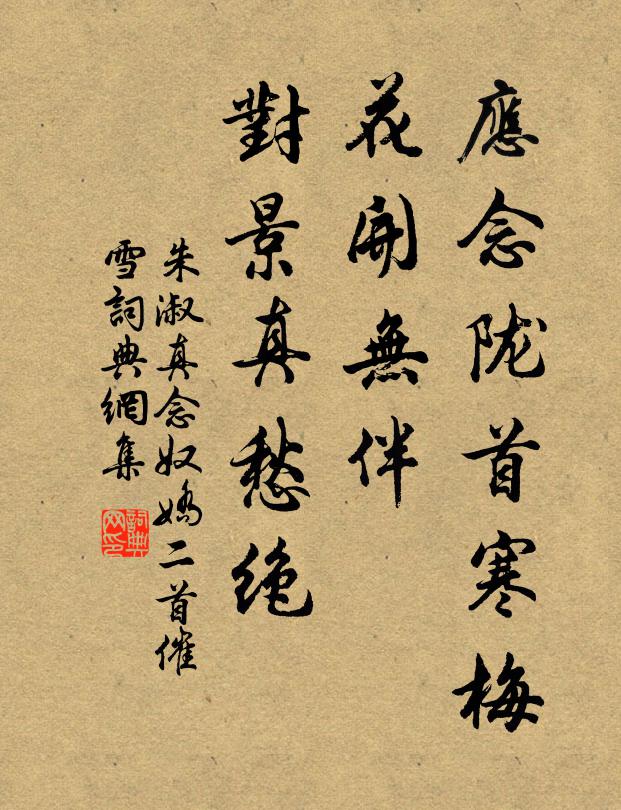 應念陇首寒梅
花開無伴
對景真愁绝
朱淑真念奴嬌二首催
雪詞典網集
詞典网印